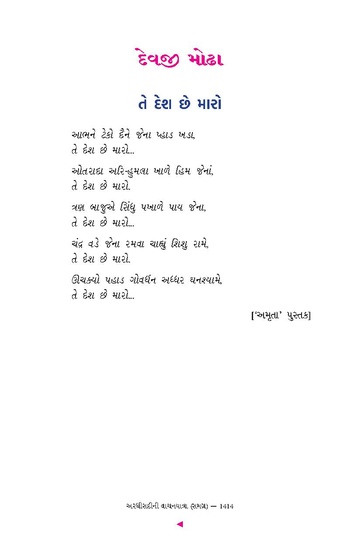 દેવજી મોઢા
તે દેશ છે મારો
આભને ટેકો દૈને જેના પ્હાડ ખડા,
તે દેશ છે મારો...
ઓતરાદા અરિ-હુમલા ખાળે હિમ જેનાં,
તે દેશ છે મારો.
ત્રણ બાજુએ સિંધુ પખાળે પાય જેના,
તે દેશ છે મારો...
ચંદ્ર વડે જેના રમવા ચાહ્યું શિશુ રામે,
તે દેશ છે મારો.
ઊંચક્યો પહાડ ગોવર્ધન અધ્ધર ઘનશ્યામે,
તે દેશ છે મારો...
['અમૃતા' પુસ્તક]
અરધી સદીની વાચનયાત્રા (સમગ્ર) — 1414